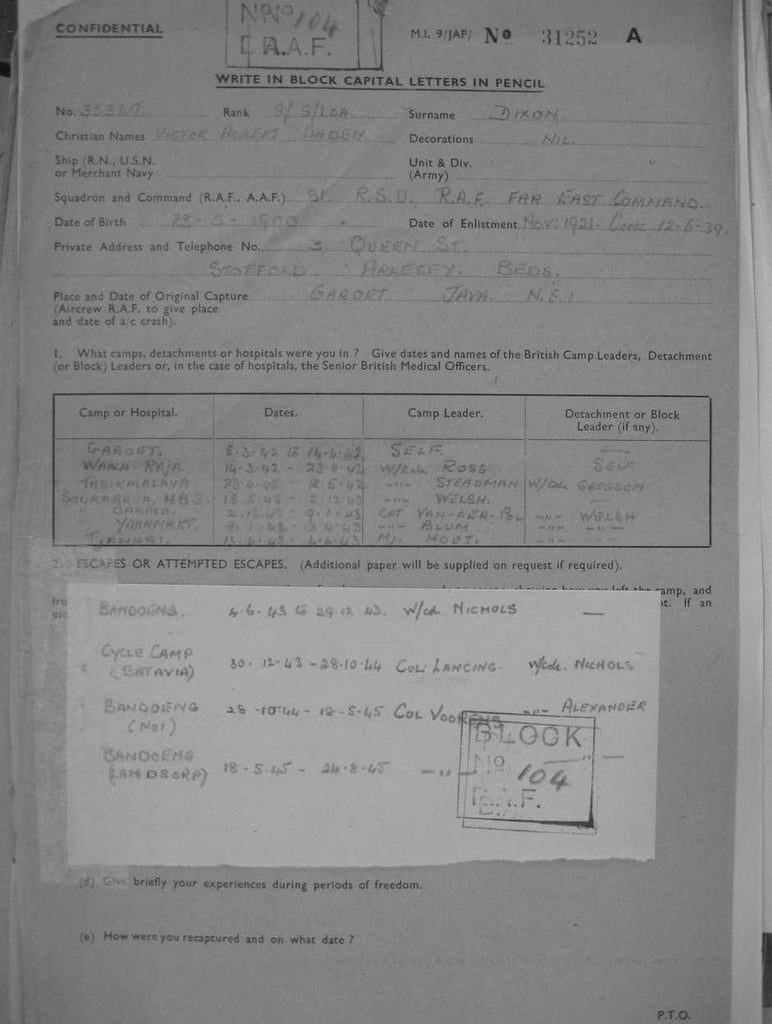 CONFIDENTIAL
Nº 104
R.A.F.
M.I. 9/JAP/ Nº 31252 A
WRITE IN BLOCK CAPITAL LETTERS IN PENCIL
No. 35349 Rank A/S/LDR Surname DIXON
Christian Names VICTOR ALBERT BADEN Decorations NIL.
Ship (R.N., U.S.N. or Merchant Navy
Unit & Div. (Army)
Squadron and Command (R.A.F., A.A.F.) 81. R.S.U. R.A.F. FAR EAST COMMAND.
Date of Birth 23-5-1900 Date of Enlistment NOV: 1921. COM: 12-6-39.
Private Address and Telephone No. 3. QUEEN ST.
STOTFOLD. ARLESEY. BEDS.
Place and Date of Original Capture GAROET. JAVA. N.E.I
(Aircrew R.A.F. to give place
and date of a/c crash).
1. What camps, detachments or hospitals were you in ? Give dates and names of the British Camp Leaders, Detachment
(or Block) Leaders or, in the case of hospitals, the Senior British Medical Officers.
Camp or Hospital. Dates. Camp Leader. Detachment or Block Leader (if any).
GAROET. 8-3-42 to 14-4-42 SELF. —
WANA-RAJA. 14-3-42 - 23-4-42 W/Cdr ROSS SELF
TASIKMALAYA 23-4-42 - 18-5-42 -"- STEADMAN W/Cdr. GREGSON
SOURABAYA, H.B.S. 18-5-42 - 2-12-42 -"- WELSH. —
" 2.12.42 - 9-1-43 CPT VAN-DER- -"- WELSH
" YAARMARKT. 9-1-43 - 13-4-43 -"- BLUM -"- -"-
TJIMAHI. 13-4-43 - 4-6-43 MJ. HOOT. -"- -"-
2. ESCAPES OR ATTEMPTED ESCAPES. (Additional paper will be supplied on request if required).
how you left the camp, and
it. If an
BANDOENG. 4-6-43 to 29.12.43. W/Cdr. NICHOLS —
CYCLE CAMP (BATAVIA) 30-12-43 - 28-10-44 COL: LANCING. W/Cdr. NICHOLS
BANDOENG (No1) 28-10-44 - 18-5-45 COL VOORENS -"- ALEXANDER
BANDOENG 18-5-45 - 24-8-45 -"- —
BLOCK
Nº 104
R.A.F.
(d) Give briefly your experiences during periods of freedom.
(e) How were you recaptured and on what date ?
P.T.O.